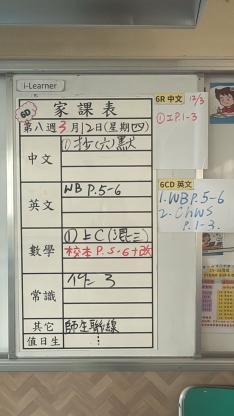 i-Learner
6D
家課表
第八週3月12日(星期四)
中文
①抄(六)默
英文
WB P.5-6
數學
①上C(混三)
校本 P.5-6+改
常識
作 3
其它
師生聯線
值日生
6R 中文
12/3
①工P.1-3
6CD 英文
1.WB P.5-6
2.ChWS
P.1-3.